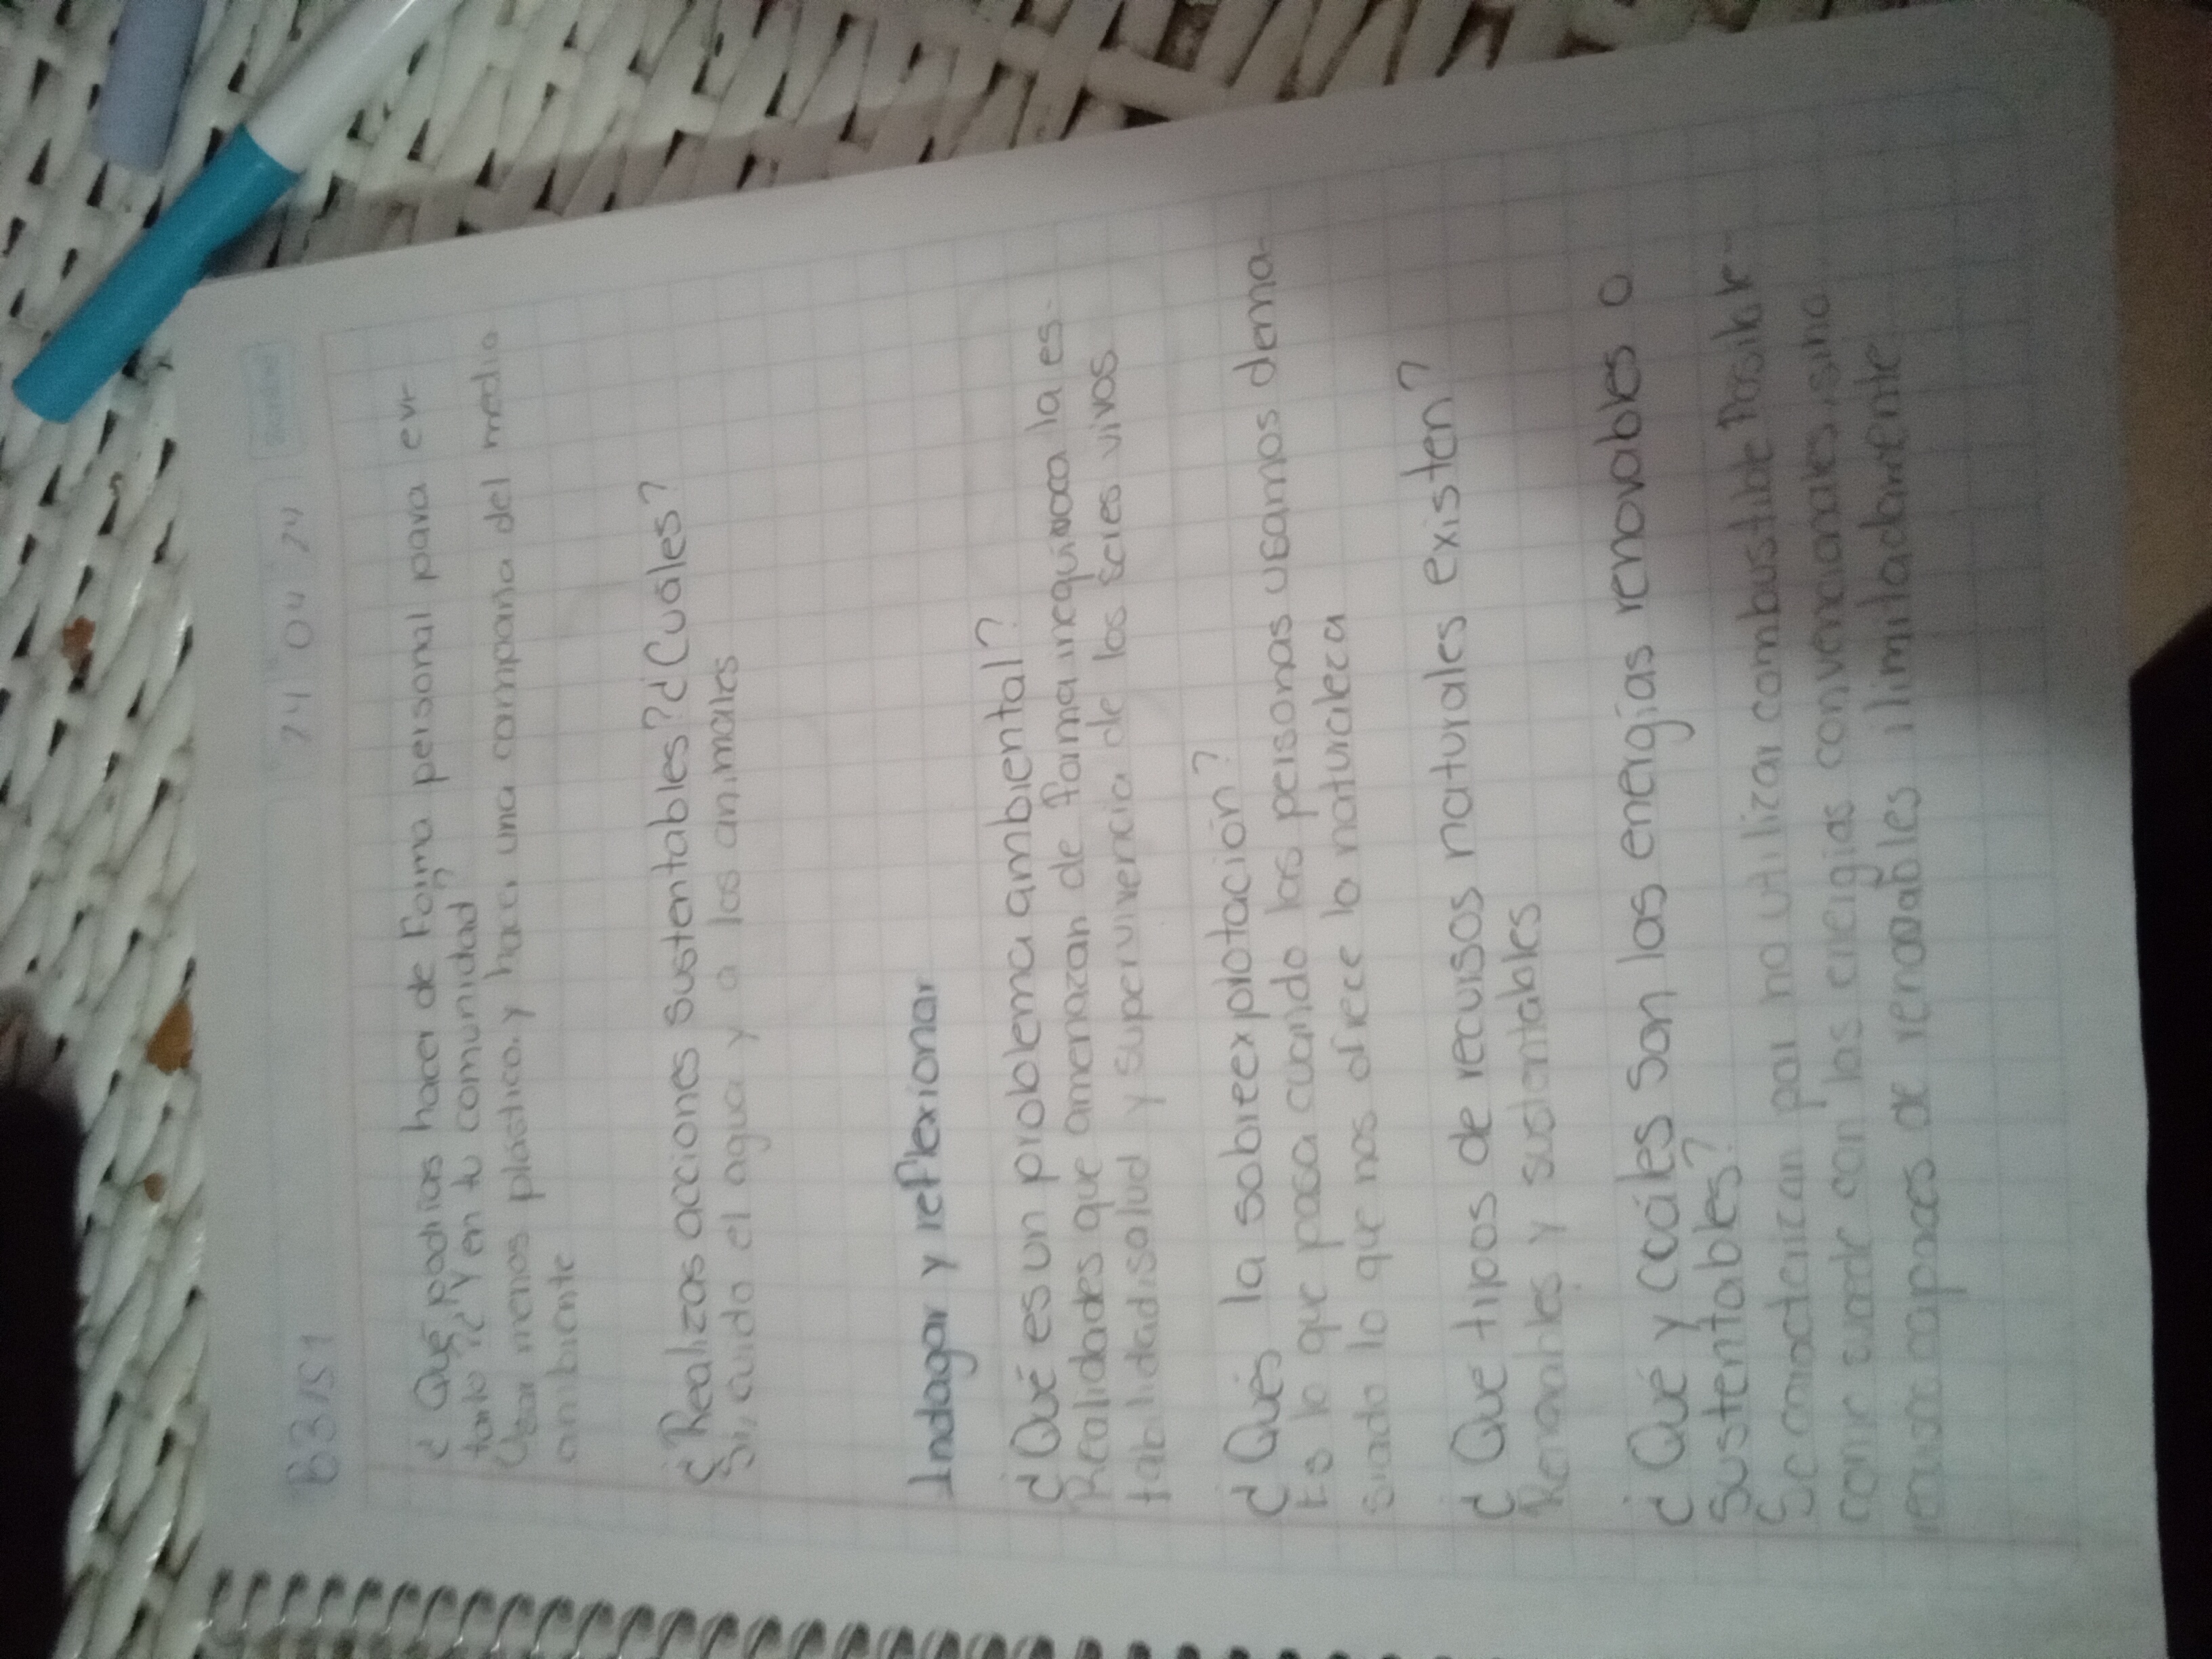 B3/S1
24 04 24
¿Qué podrías hacer de forma personal para evi-
tarlo? ¿Y en tu comunidad?
Usar menos plástico. y hacer una campaña del medio
ambiente
¿Realizas acciones sustentables? ¿Cuáles?
Si, cuido el agua y a los animales
Indagar y reflexionar
¿Qué es un problema ambiental?
Realidades que amenazan de forma inequivoca la es-
tabilidad, salud y supervivencia de los seres vivos
¿Qués la sobreexplotación?
Es lo que pasa cuando las personas usamos dema-
siado lo que nos ofrece la naturaleza
¿Que tipos de recursos naturales existen?
Renovables y sustentables
¿Qué y cuáles son las energías renovables o
sustentables?
Se caracterizan por no utilizar combustible
como sucede con las energías convencionales, sino
recursos capaces de renovables ilimitadamente